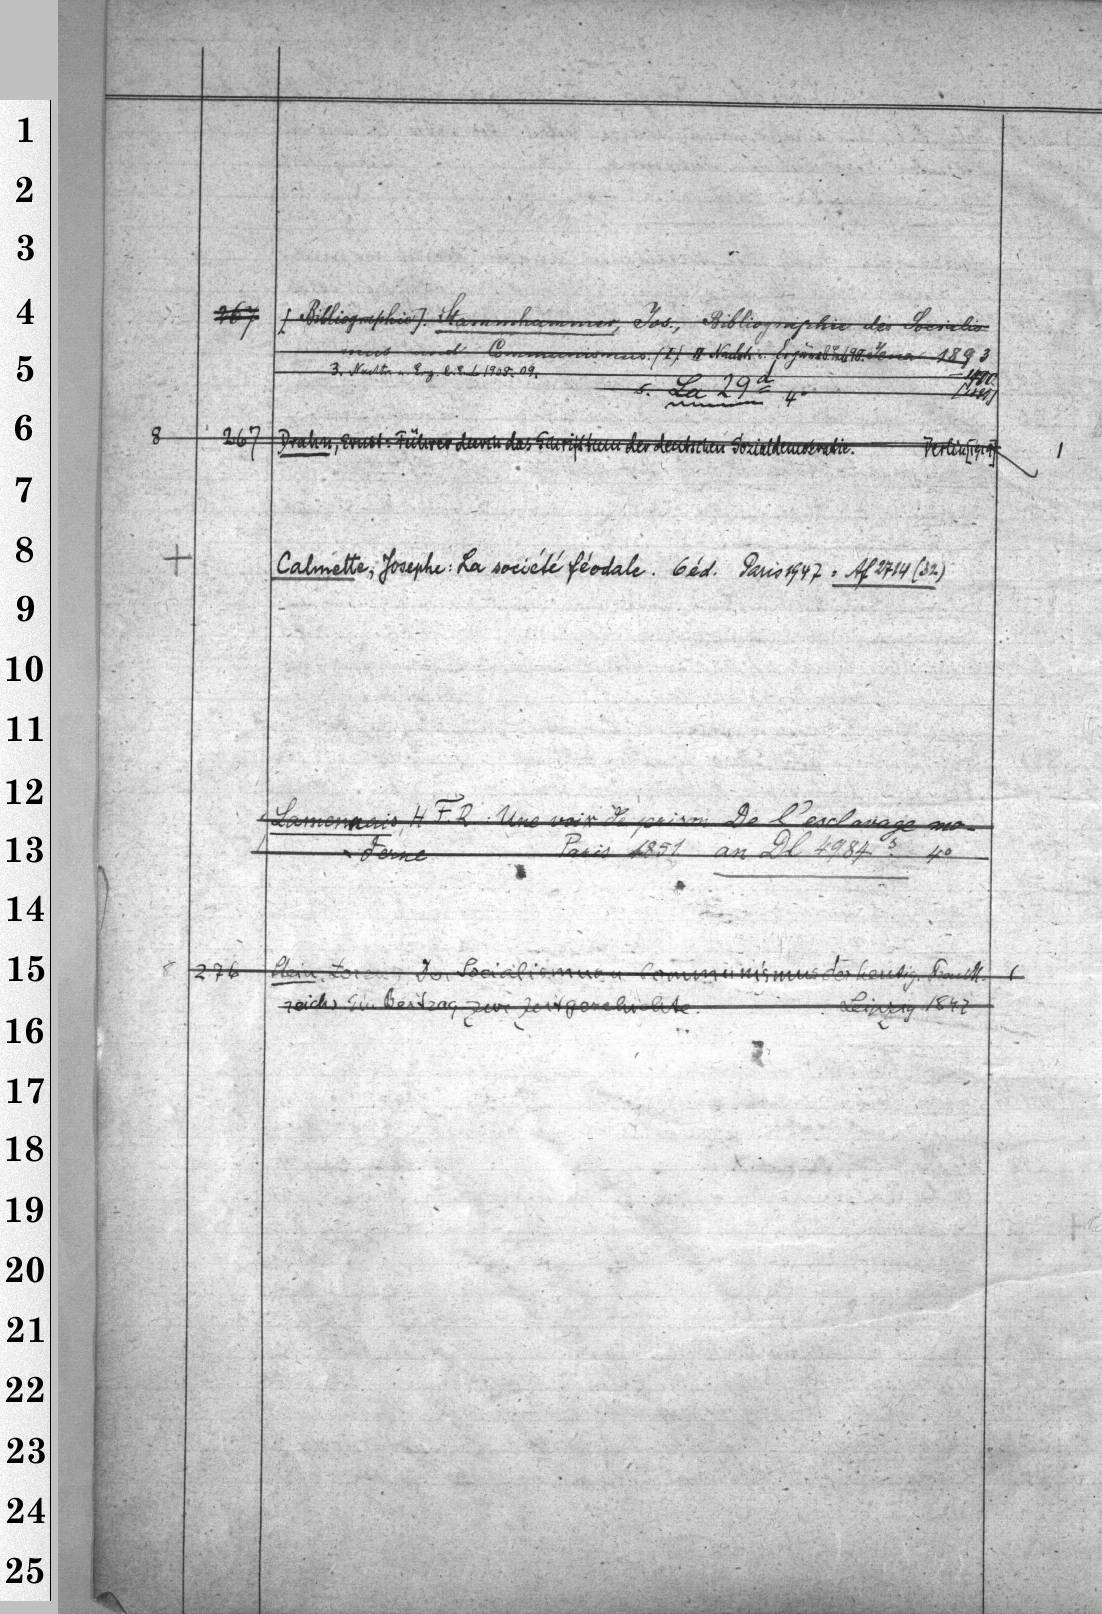 1
2
3
4 267 [Bibliographie]. Stammhammer, Jos., Bibliographie des Socialis-
mus und Communismus. (I) II Nachtr. u. Ergänz. b. z. J. 1898. Jena 1893
5 3. Nachtr. u. Erg. b. E. d. J. 1908. 09. –1900.
s. La 29d 4°
6 8 267 Drahn, Ernst: Führer durch das Schrifttum der deutschen Sozialdemokratie. Berlin [1919] 1
7
8 + Calmette, Josephe: La société féodale. 6 éd. Paris 1947 = Af 2714 (32)
9
10
11
12 Lamennais, H F. R. Une voix de prison De l'esclavage mo-
13 derne Paris 1851 an Dl 4984 4°
14
15 8 276 Stein, Lorenz Der Socialismus u Communismus des heutig. Frank-
reichs Ein Beitrag zur Zeitgeschichte. Leipzig 1842
16
17
18
19
20
21
22
23
24
25